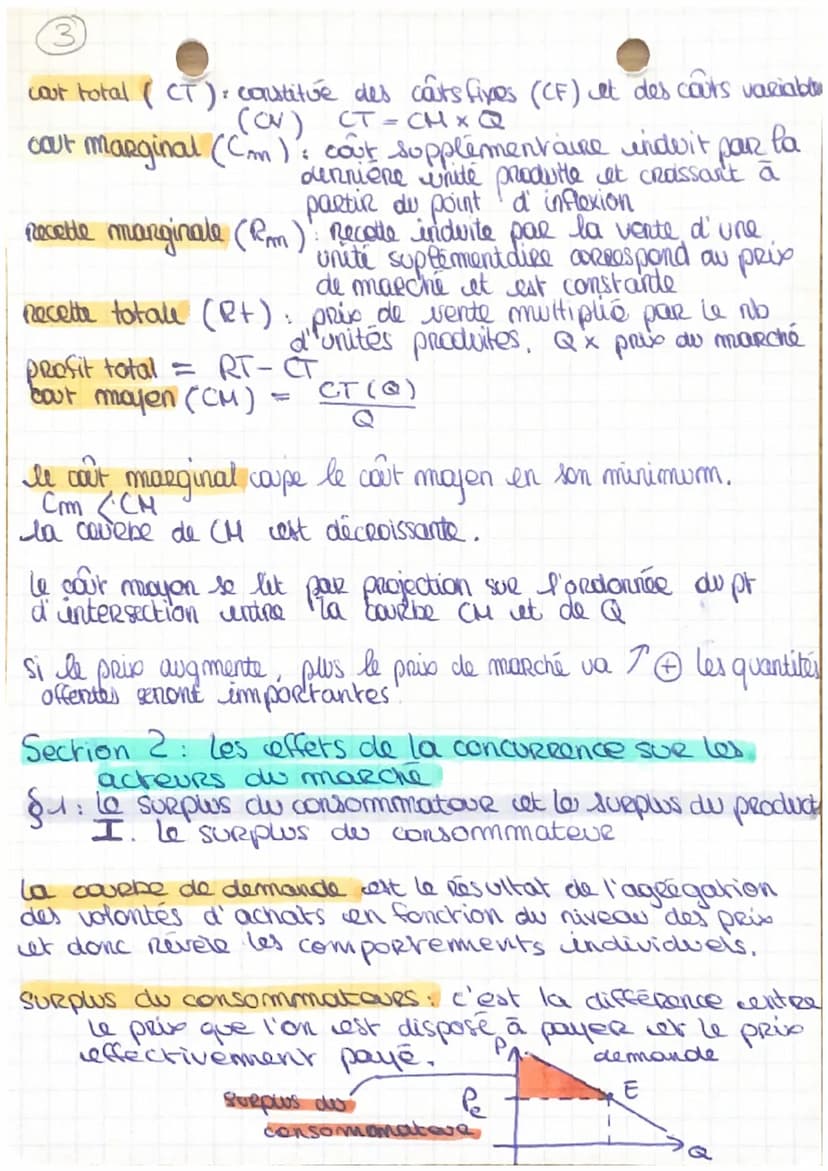 3
coût total (CT) : constitué des coûts fixes (CF) et des coûts variable
(CV) CT = CM x Q
coût marginal (Cm) : coût supplémentaire induit par la
dernière unité produite et croissant à
partir du point d'inflexion
recette marginale (Rm) : recette induite par la vente d'une
unité suplémentaire correspond au prix
de marché et est constante
recette totale (Rt) : prix de vente multiplié par le nb
d'unités produites, Q x prix du marché
profit total = RT - CT
cout moyen (CM) = CT (Q)
Q
le coût marginal coupe le coût moyen en son minimum.
Cm < CM
la courbe de CM est décroissante.
le coût moyen se lit par projection sur l'ordonnée du pt
d'intersection entre la courbe CM et de Q
Si le prix augmente, plus le prix de marché va ↑ ⊕ les quantités
offertes seront importantes
Section 2 : Les effets de la concurrence sur les
acteurs du marché
§1 : Le surplus du consommateur et le surplus du product
I. Le surplus du consommateur
La courbe de demande est le résultat de l'aggrégation
des volontés d'achats en fonction du niveau des prix
et donc révèle les comportements individuels.
Surplus du consommateurs : c'est la différence entre
le prix que l'on est disposé à payer et le prix
effectivement payé.
P
demande
Surplus du
consommateur
Pe
E
Q